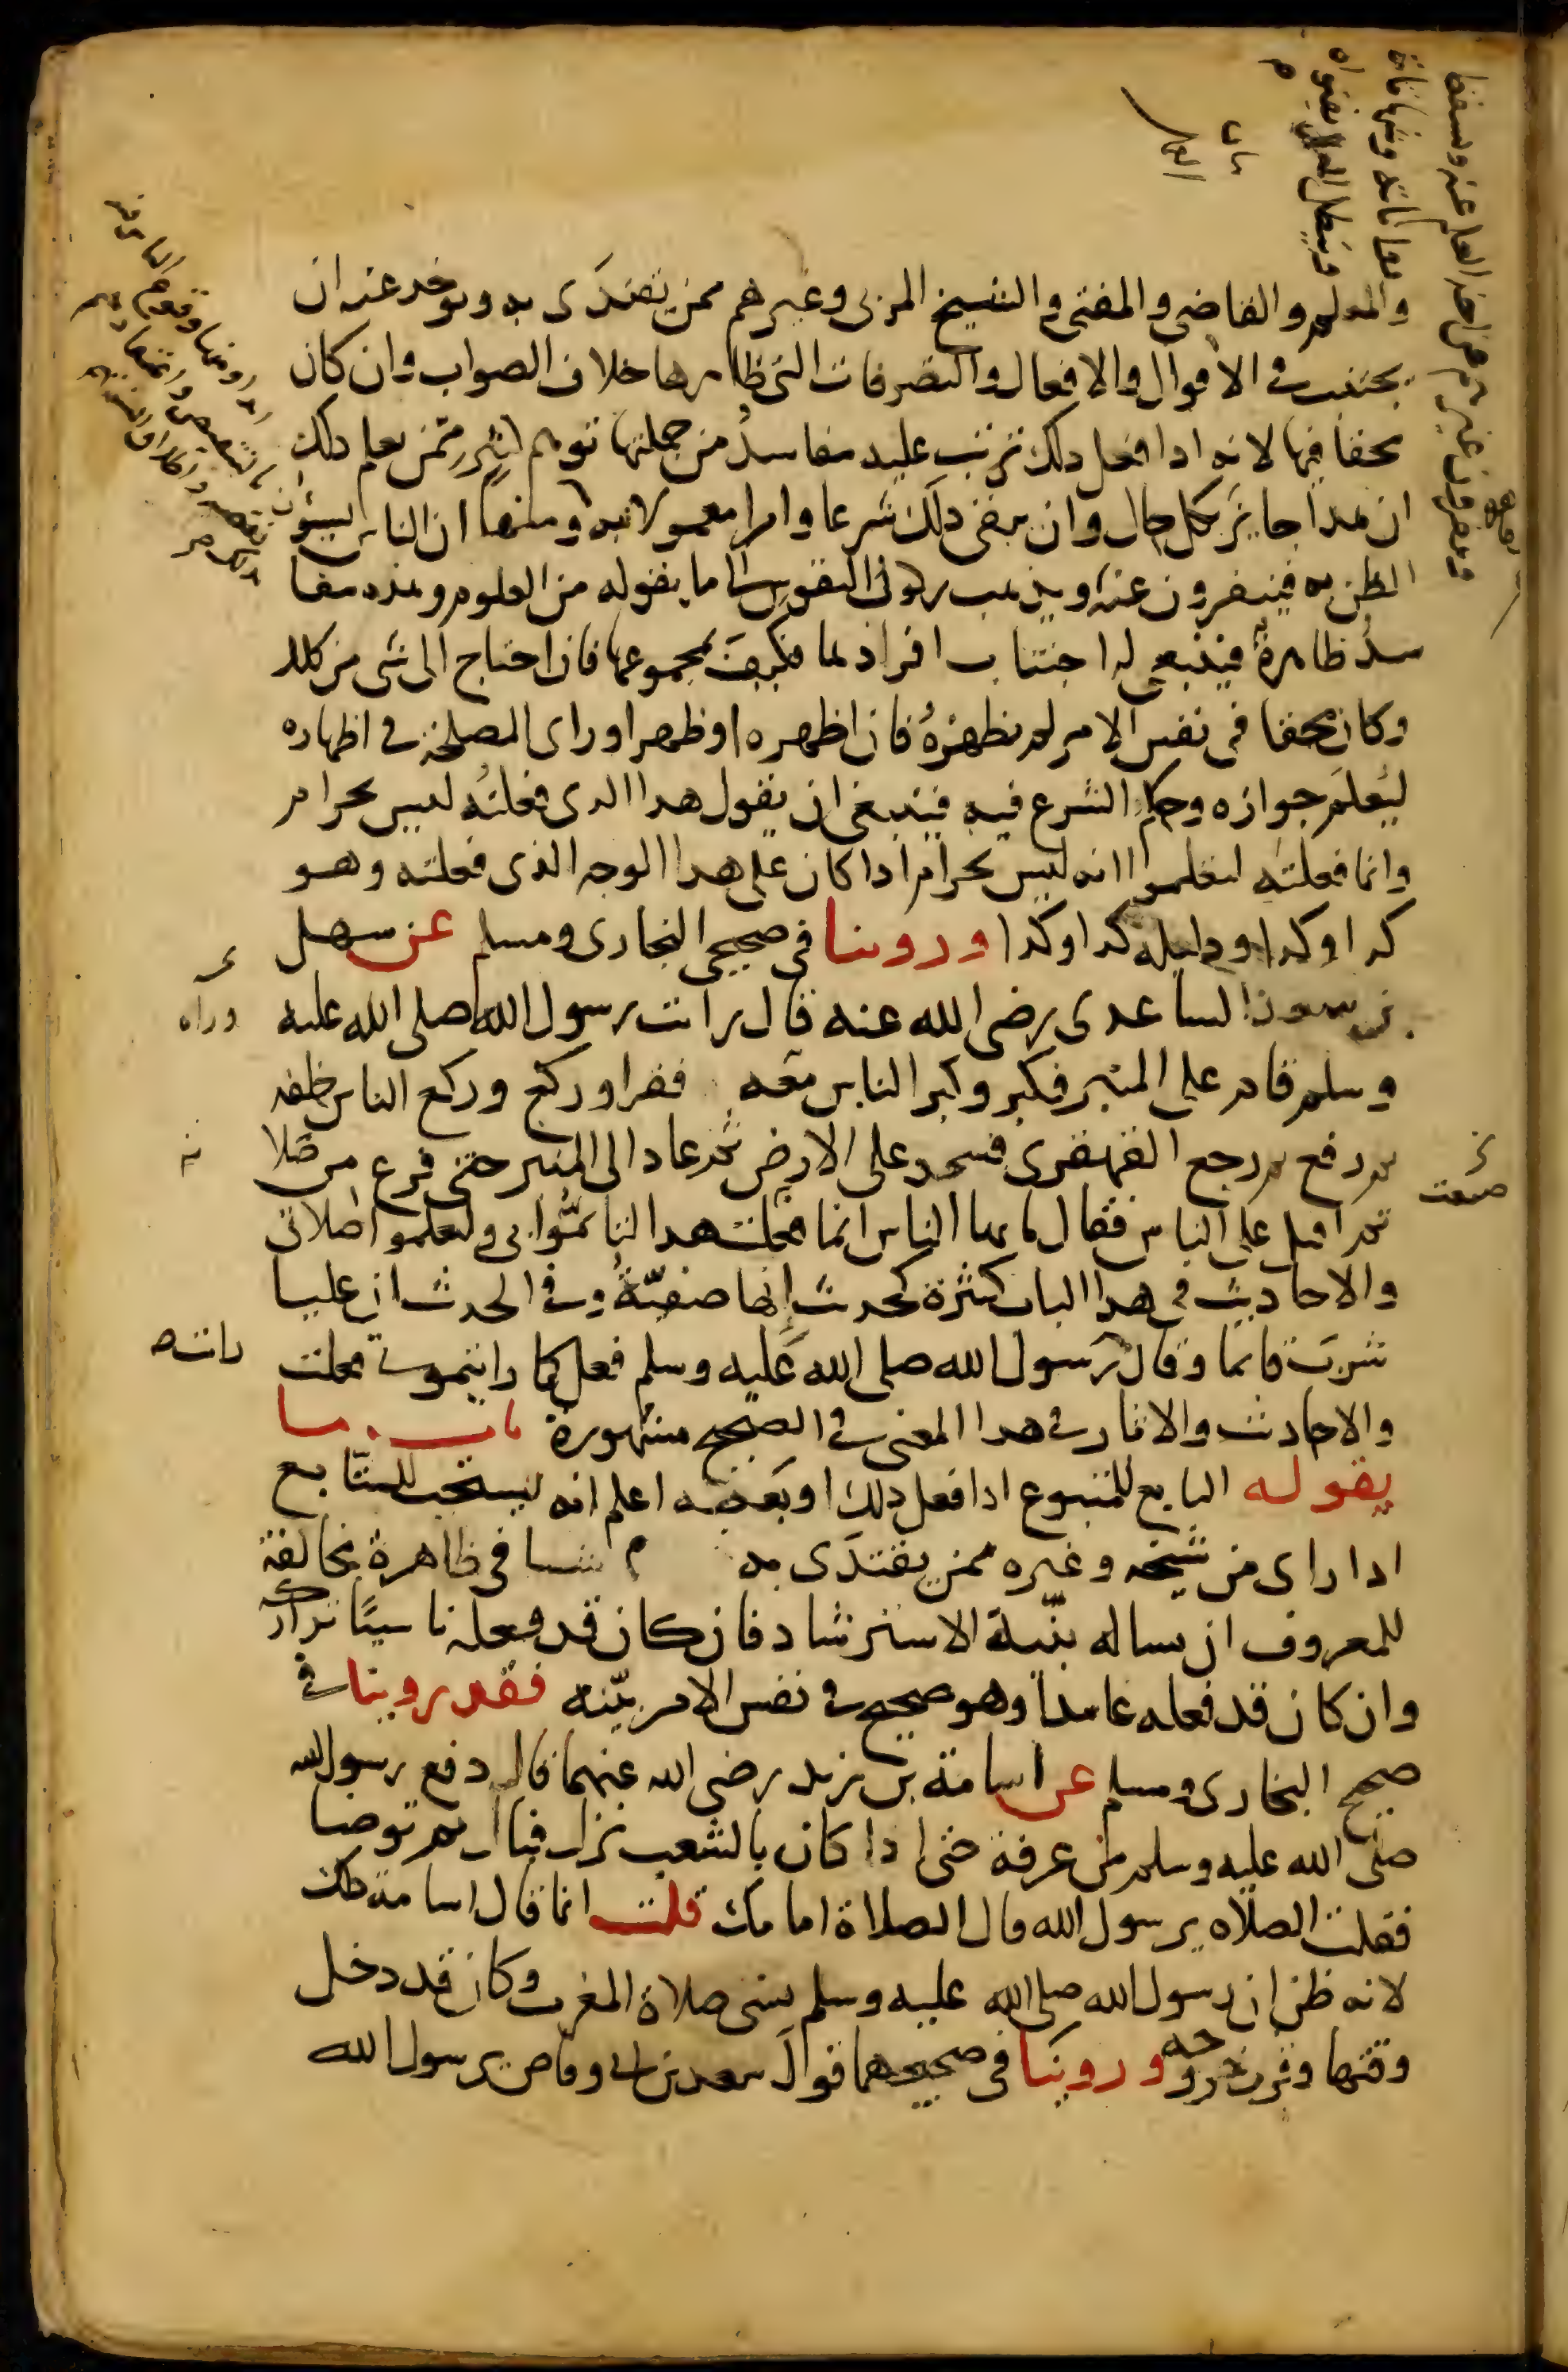 والمعلم والقاضى والمفتى والشيخ المربى وغيرهم ممن يقتدَى به ويوخد عنه ان
يجتنب فى الاقوال والافعال والتصرفات التى ظاهرها خلاف الصواب وان كان
محقا فيها لانه ادا فعل دلك ترتب عليه مفاسدُ من جملتها توهم كثير ممّن يعلم دلك
ان هدا جايز بكل حال وان يبقى دلك شرعا وامرا معمولا به ومنها ان الناس يسيؤن
الظن به فينفرون عنه وبذهب
ما يقوله من العلوم وهذه مفا
سدُ ظاهرة فينبغى له اجتناب افرادها فكيف بمجموعها فان احتاج الى شى من دلك
وكان محقا فى نفس الامر لم يظهرهُ فان اظهره او ظهر او راى المصلحة فى اظهاره
ليُعلَم جوازه وحكم الشرع فيه فينبغى ان يقول هدا الدى فعلتُه ليس بحرام
وانما فعلته لتعلموا انه ليس بحرام ادا كان على هدا الوجه الذى فعلته وهو
كدا وكدا ودليله كدا وكدا وروينا فى صحيحى البخارى ومسلم عن سهل
بن سعد الساعدى رضى الله عنه قال رايت رسول الله صلى الله عليه
وسلم قام على المنبر فكبر وكبر الناس معه فقرا وركع وركع الناس خلفه
ثم رفع ثم رجع القهقرى فسجد على الارض ثم عاد الى المنبر حتى فرع من صَلا
ثم اقبل على الناس فقال يايها الناس انما فعلت هدا لتاتمُّوا بى ولتعلموا صلاتى
والاحاديث فى هدا الباب كثيرة كحديث إنها صفيّةُ وفى الحديث ان عليا
شربَ قايما وقال رَسول الله صلى الله عَليه وسلم فعل كما رايتمونى فعلت
والاحاديث والاثار فى هدا المعنى فى الصحيح مشهورة باب ما
يقوله التابع للمتبوع ادا فعل دلك او بَعضه اعلم انه يستحب للتّابع
ادا راى من شيخه وغيره ممن يقتدَى به شيا فى ظاهره مخالفة
للمعروف ان يساله بنيّة الاسترشاد فان كان قد فعله ناسيًا تداركه
وان كان قد فعله عامداً وهو صحيح فى نفس الامر بيّنه فقد روينا فى
صحيح البخارى ومسلم عن اسامة بن زيد رضى الله عنهما قال دفع رسول الله
صلى الله عليه وسلم من عرفة حتى ادا كان بالشعب نزل فبال ثم توضا
فقلت الصلاه يرسول الله قال الصلاة امامك قلت انما قال اسامة دلك
لانه ظن ان رسول الله صلى الله عليه وسلم نسى صلاة المغرب وكان قد دخل
وقتها وقرب خروجه وروينا فى صحيحهما قولَ سعد بن ابى وقاص يرسول الله
وراه
صنعت